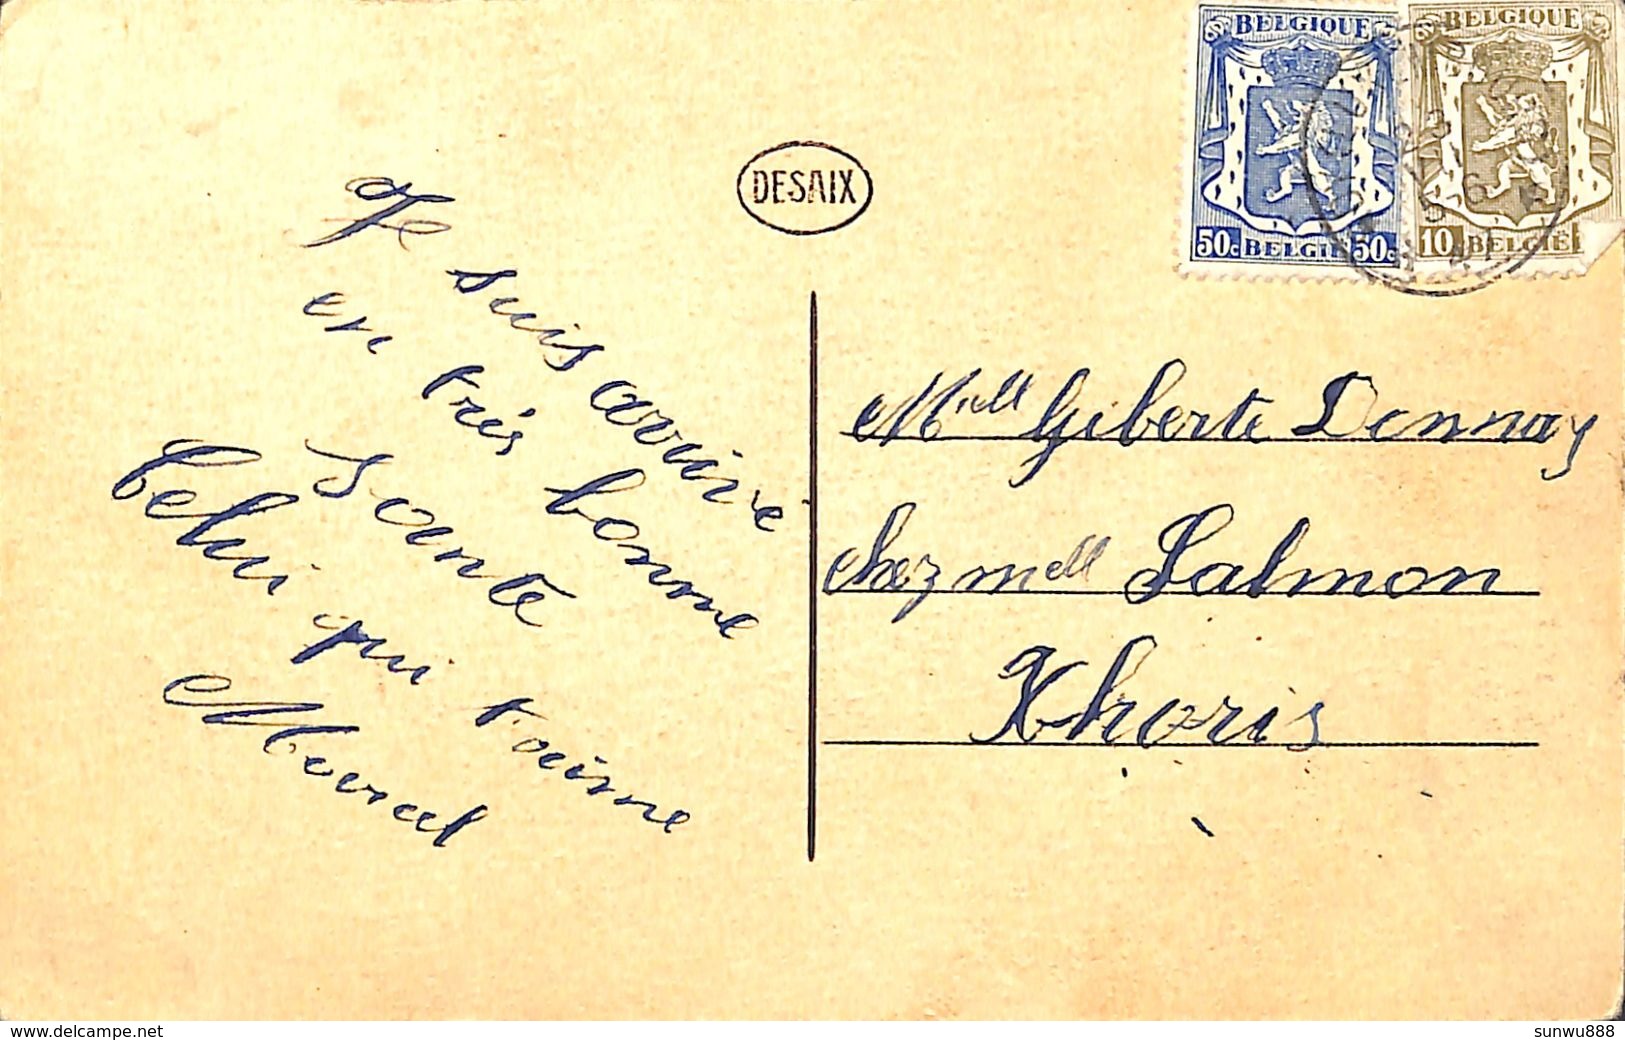 BELGIQUE
50c BELGIE 50c
BELGIQUE
10 BELGIË
DESAIX
Je suis arrivé
en très bonne
Sante
Celui qui t'aime
Marcel
Mielle Giberte Dennay
chez melle Salmon
Xhoris
www.delcampe.net
sunwu888